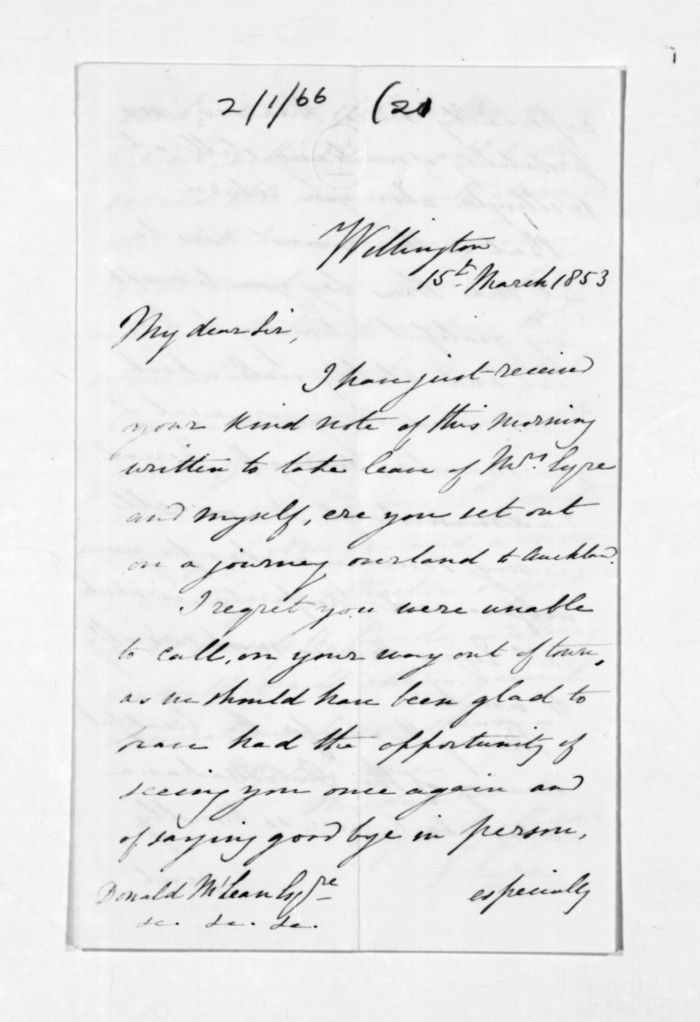 2/1/66 (20
Wellington
15t March 1853
My dear Sir,
I have just received
your kind note of this morning
written to take leave of Mrs. Eyre
and myself, ere you set out
on a journey overland to Auckland.
I regret you were unable
to call, on your way out of town,
as we should have been glad to
have had the opportunity of
seeing you once again and
of saying good bye in person,
Donald McLean Esqre especially
&c. &c. &c.